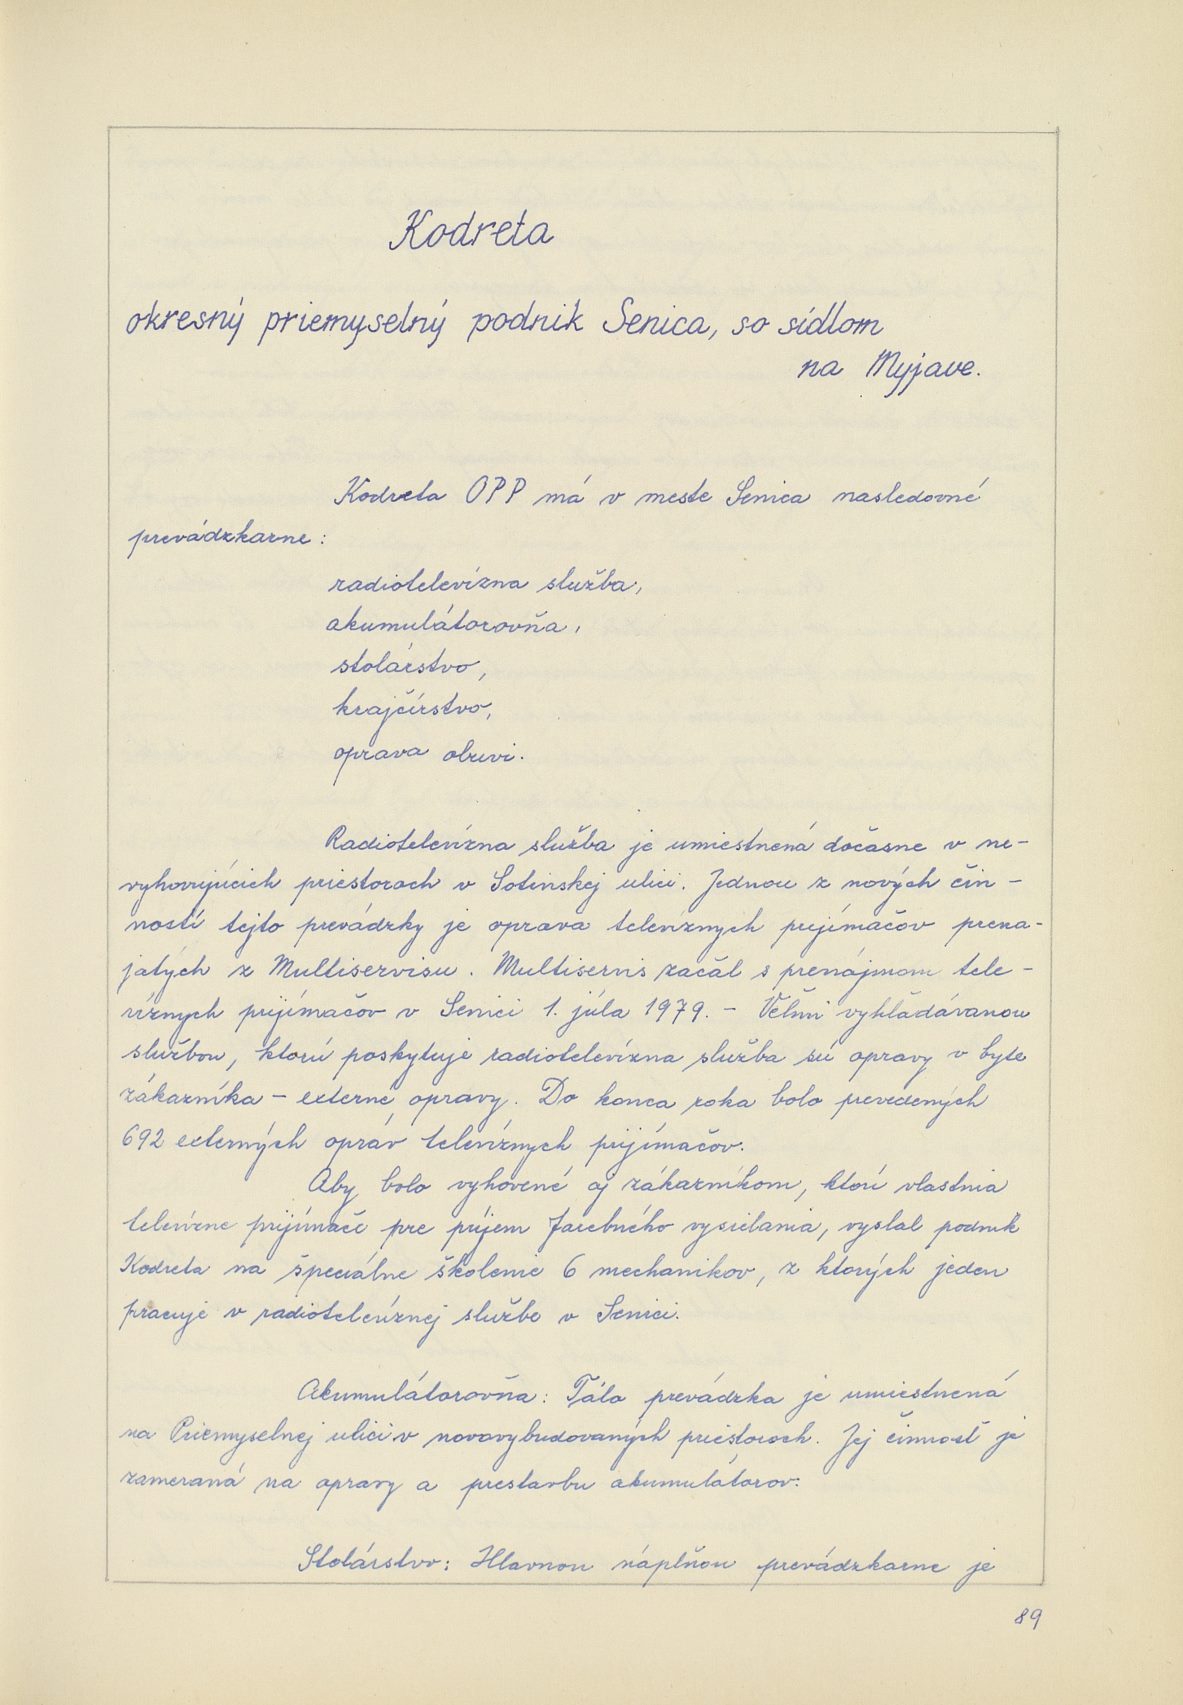 Kodreta
okresný priemyselný podnik Senica, so sídlom
na Myjave.
Kodreta OPP má v meste Senica nasledovné
prevádzkarne:
radiotelevízna služba,
akumulátorovňa,
stolárstvo,
krajčírstvo,
oprava obuvi.
Radiotelevízna služba je umiestnená dočasne v ne-
vyhovujúcich priestoroch v Sotinskej ulici. Jednou z nových čin-
ností tejto prevádzky je oprava televíznych prijímačov prena-
jatých z Multiservisu. Multiservis začal s prenájmom tele-
víznych prijímačov v Senici 1. júla 1979. - Veľmi vyhľadávanou
službou, ktorú poskytuje radiotelevízna služba sú opravy v byte
zákazníka - externé opravy. Do konca roka bolo prevedených
692 externých opráv televíznych prijímačov.
Aby bolo vyhovené aj zákazníkom, ktorí vlastnia
televízne prijímače pre príjem farebného vysielania, vyslal podnik
Kodreta na špeciálne školenie 6 mechanikov, z ktorých jeden
pracuje v radiotelevíznej službe v Senici.
Akumulátorovňa: Táto prevádzka je umiestnená
na Priemyselnej ulici v novovybudovaných priestoroch. Jej činnosť je
zameraná na opravy a prestavbu akumulátorov.
Stolárstvo: Hlavnou náplňou prevádzkarne je
89